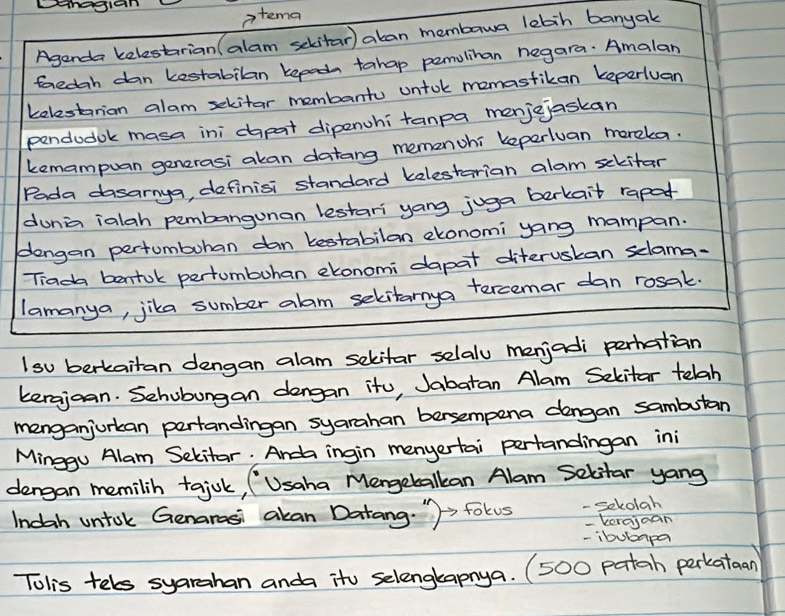 Bahagian
→ tema
Agenda kelestarian (alam sekitar) akan membawa lebih banyak
faedah dan kestabilan kepada tahap pemulihan negara. Amalan
kelestarian alam sekitar membantu untuk memastikan keperluan
penduduk masa ini dapat dipenuhi tanpa menjejaskan
kemampuan generasi akan datang memenuhi keperluan mereka.
Pada dasarnya, definisi standard kelestarian alam sekitar
dunia ialah pembangunan lestari yang juga berkait rapat
dengan pertumbuhan dan kestabilan ekonomi yang mampan.
Tiada bentuk pertumbuhan ekonomi dapat diteruskan selama-
lamanya, jika sumber alam sekitarnya tercemar dan rosak.
Isu berkaitan dengan alam sekitar selalu menjadi perhatian
kerajaan. Sehubungan dengan itu, Jabatan Alam Sekitar telah
menganjurkan pertandingan syarahan bersempena dengan sambutan
Minggu Alam Sekitar. Anda ingin menyertai pertandingan ini
dengan memilih tajuk, ("Usaha Mengekalkan Alam Sekitar yang
Indah untuk Genarasi akan Datang.") → fokus
- sekolah
- kerajaan
- ibubapa
Tulis teks syarahan anda itu selengkapnya. (500 patah perkataan)